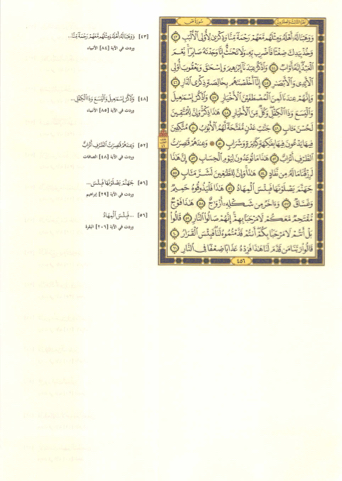 وَوَهَبْنَا لَهُۥٓ أَهْلَهُۥ وَمِثْلَهُم مَّعَهُمْ رَحْمَةً مِّنَّا وَذِكْرَىٰ لِأُو۟لِى ٱلْأَلْبَٰبِ ٤٣
وَخُذْ بِيَدِكَ ضِغْثًا فَٱضْرِب بِّهِۦ وَلَا تَحْنَثْ إِنَّا وَجَدْنَٰهُ صَابِرًا نِّعْمَ
ٱلْعَبْدُ إِنَّهُۥٓ أَوَّابٌ ٤٤ وَٱذْكُرْ عِبَٰدَنَآ إِبْرَٰهِيمَ وَإِسْحَٰقَ وَيَعْقُوبَ أُو۟لِى
ٱلْأَيْدِى وَٱلْأَبْصَٰرِ ٤٥ إِنَّآ أَخْلَصْنَٰهُم بِخَالِصَةٍ ذِكْرَى ٱلدَّارِ ٤٦
وَإِنَّهُمْ عِندَنَا لَمِنَ ٱلْمُصْطَفَيْنَ ٱلْأَخْيَارِ ٤٧ وَٱذْكُرْ إِسْمَٰعِيلَ
وَٱلْيَسَعَ وَذَا ٱلْكِفْلِ وَكُلٌّ مِّنَ ٱلْأَخْيَارِ ٤٨ هَٰذَا ذِكْرٌ وَإِنَّ لِلْمُتَّقِينَ
لَحُسْنَ مَـَٔابٍ ٤٩ جَنَّٰتِ عَدْنٍ مُّفَتَّحَةً لَّهُمُ ٱلْأَبْوَٰبُ ٥٠ مُتَّكِـِٔينَ
فِيهَا يَدْعُونَ فِيهَا بِفَٰكِهَةٍ كَثِيرَةٍ وَشَرَابٍ ٥١ وَعِندَهُمْ قَٰصِرَٰتُ
ٱلطَّرْفِ أَتْرَابٌ ٥٢ هَٰذَا مَا تُوعَدُونَ لِيَوْمِ ٱلْحِسَابِ ٥٣ إِنَّ هَٰذَا
لَرِزْقُنَا مَا لَهُۥ مِن نَّفَادٍ ٥٤ هَٰذَا وَإِنَّ لِلطَّٰغِينَ لَشَرَّ مَـَٔابٍ ٥٥
جَهَنَّمَ يَصْلَوْنَهَا فَبِئْسَ ٱلْمِهَادُ ٥٦ هَٰذَا فَلْيَذُوقُوهُ حَمِيمٌ
وَغَسَّاقٌ ٥٧ وَءَاخَرُ مِن شَكْلِهِۦٓ أَزْوَٰجٌ ٥٨ هَٰذَا فَوْجٌ
مُّقْتَحِمٌ مَّعَكُمْ لَا مَرْحَبًۢا بِهِمْ إِنَّهُمْ صَالُوا۟ ٱلنَّارِ ٥٩ قَالُوا۟
بَلْ أَنتُمْ لَا مَرْحَبًۢا بِكُمْ أَنتُمْ قَدَّمْتُمُوهُ لَنَا فَبِئْسَ ٱلْقَرَارُ ٦٠
قَالُوا۟ رَبَّنَا مَن قَدَّمَ لَنَا هَٰذَا فَزِدْهُ عَذَابًا ضِعْفًا فِى ٱلنَّارِ ٦١
٤٥٦
[٤٣] وَوَهَبْنَا لَهُۥٓ أَهْلَهُۥ وَمِثْلَهُم مَّعَهُمْ رَحْمَةً مِّنَّا...
وردت في الآية [٨٤] الأنبياء.
[٤٨] وَٱذْكُرْ إِسْمَٰعِيلَ وَٱلْيَسَعَ وَذَا ٱلْكِفْلِ..
وردت في الآية [٨٥] الأنبياء.
[٥٢] وَعِندَهُمْ قَٰصِرَٰتُ ٱلطَّرْفِ أَتْرَابٌ
وردت في الآية [٤٨] الصافات.
[٥٦] جَهَنَّمَ يَصْلَوْنَهَا فَبِئْسَ...
وردت في الآية [٢٩] إبراهيم.
[٥٦] ...فَبِئْسَ ٱلْمِهَادُ
وردت في الآية [٢٠٦] البقرة.